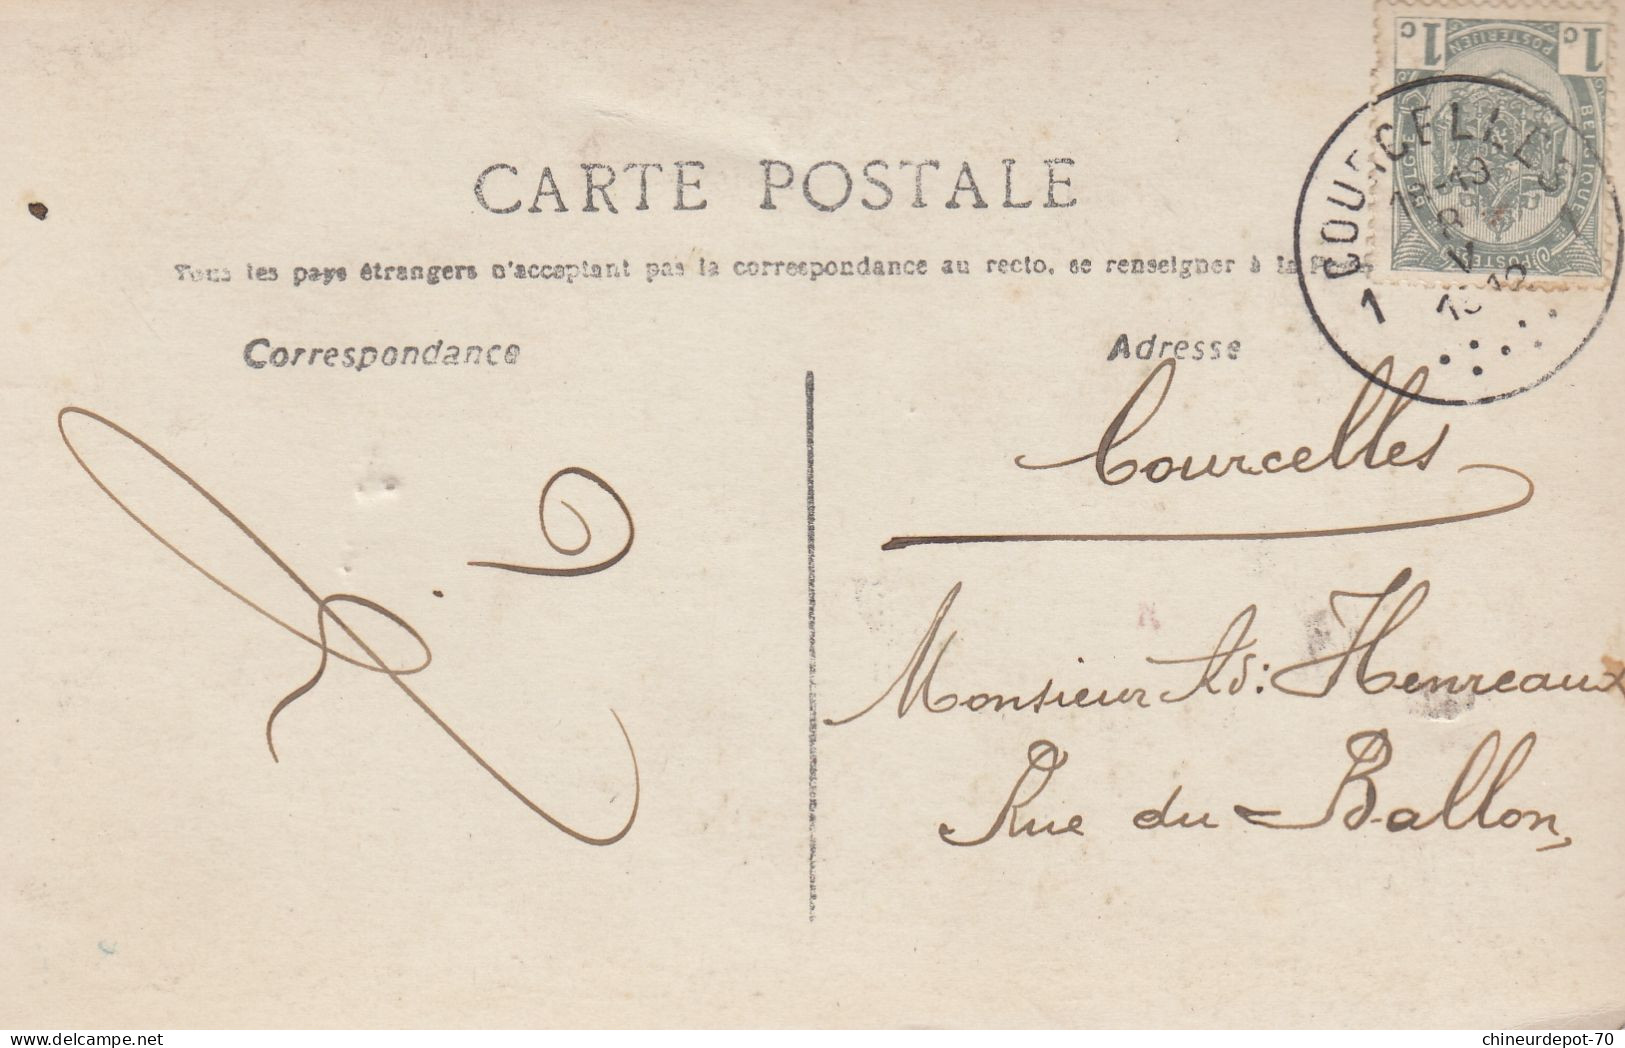 1c 1c
POSTERIJEN
BELGIQUE BELGIË
POSTES
COURCELLES
1 1
8 V
CARTE POSTALE
Tous les pays étrangers n'acceptant pas la correspondance au recto, se renseigner à la Poste
Correspondance
Adresse
Courcelles
Monsieur Ad: Henreaux
Rue du Ballon,
chineurdepot-70